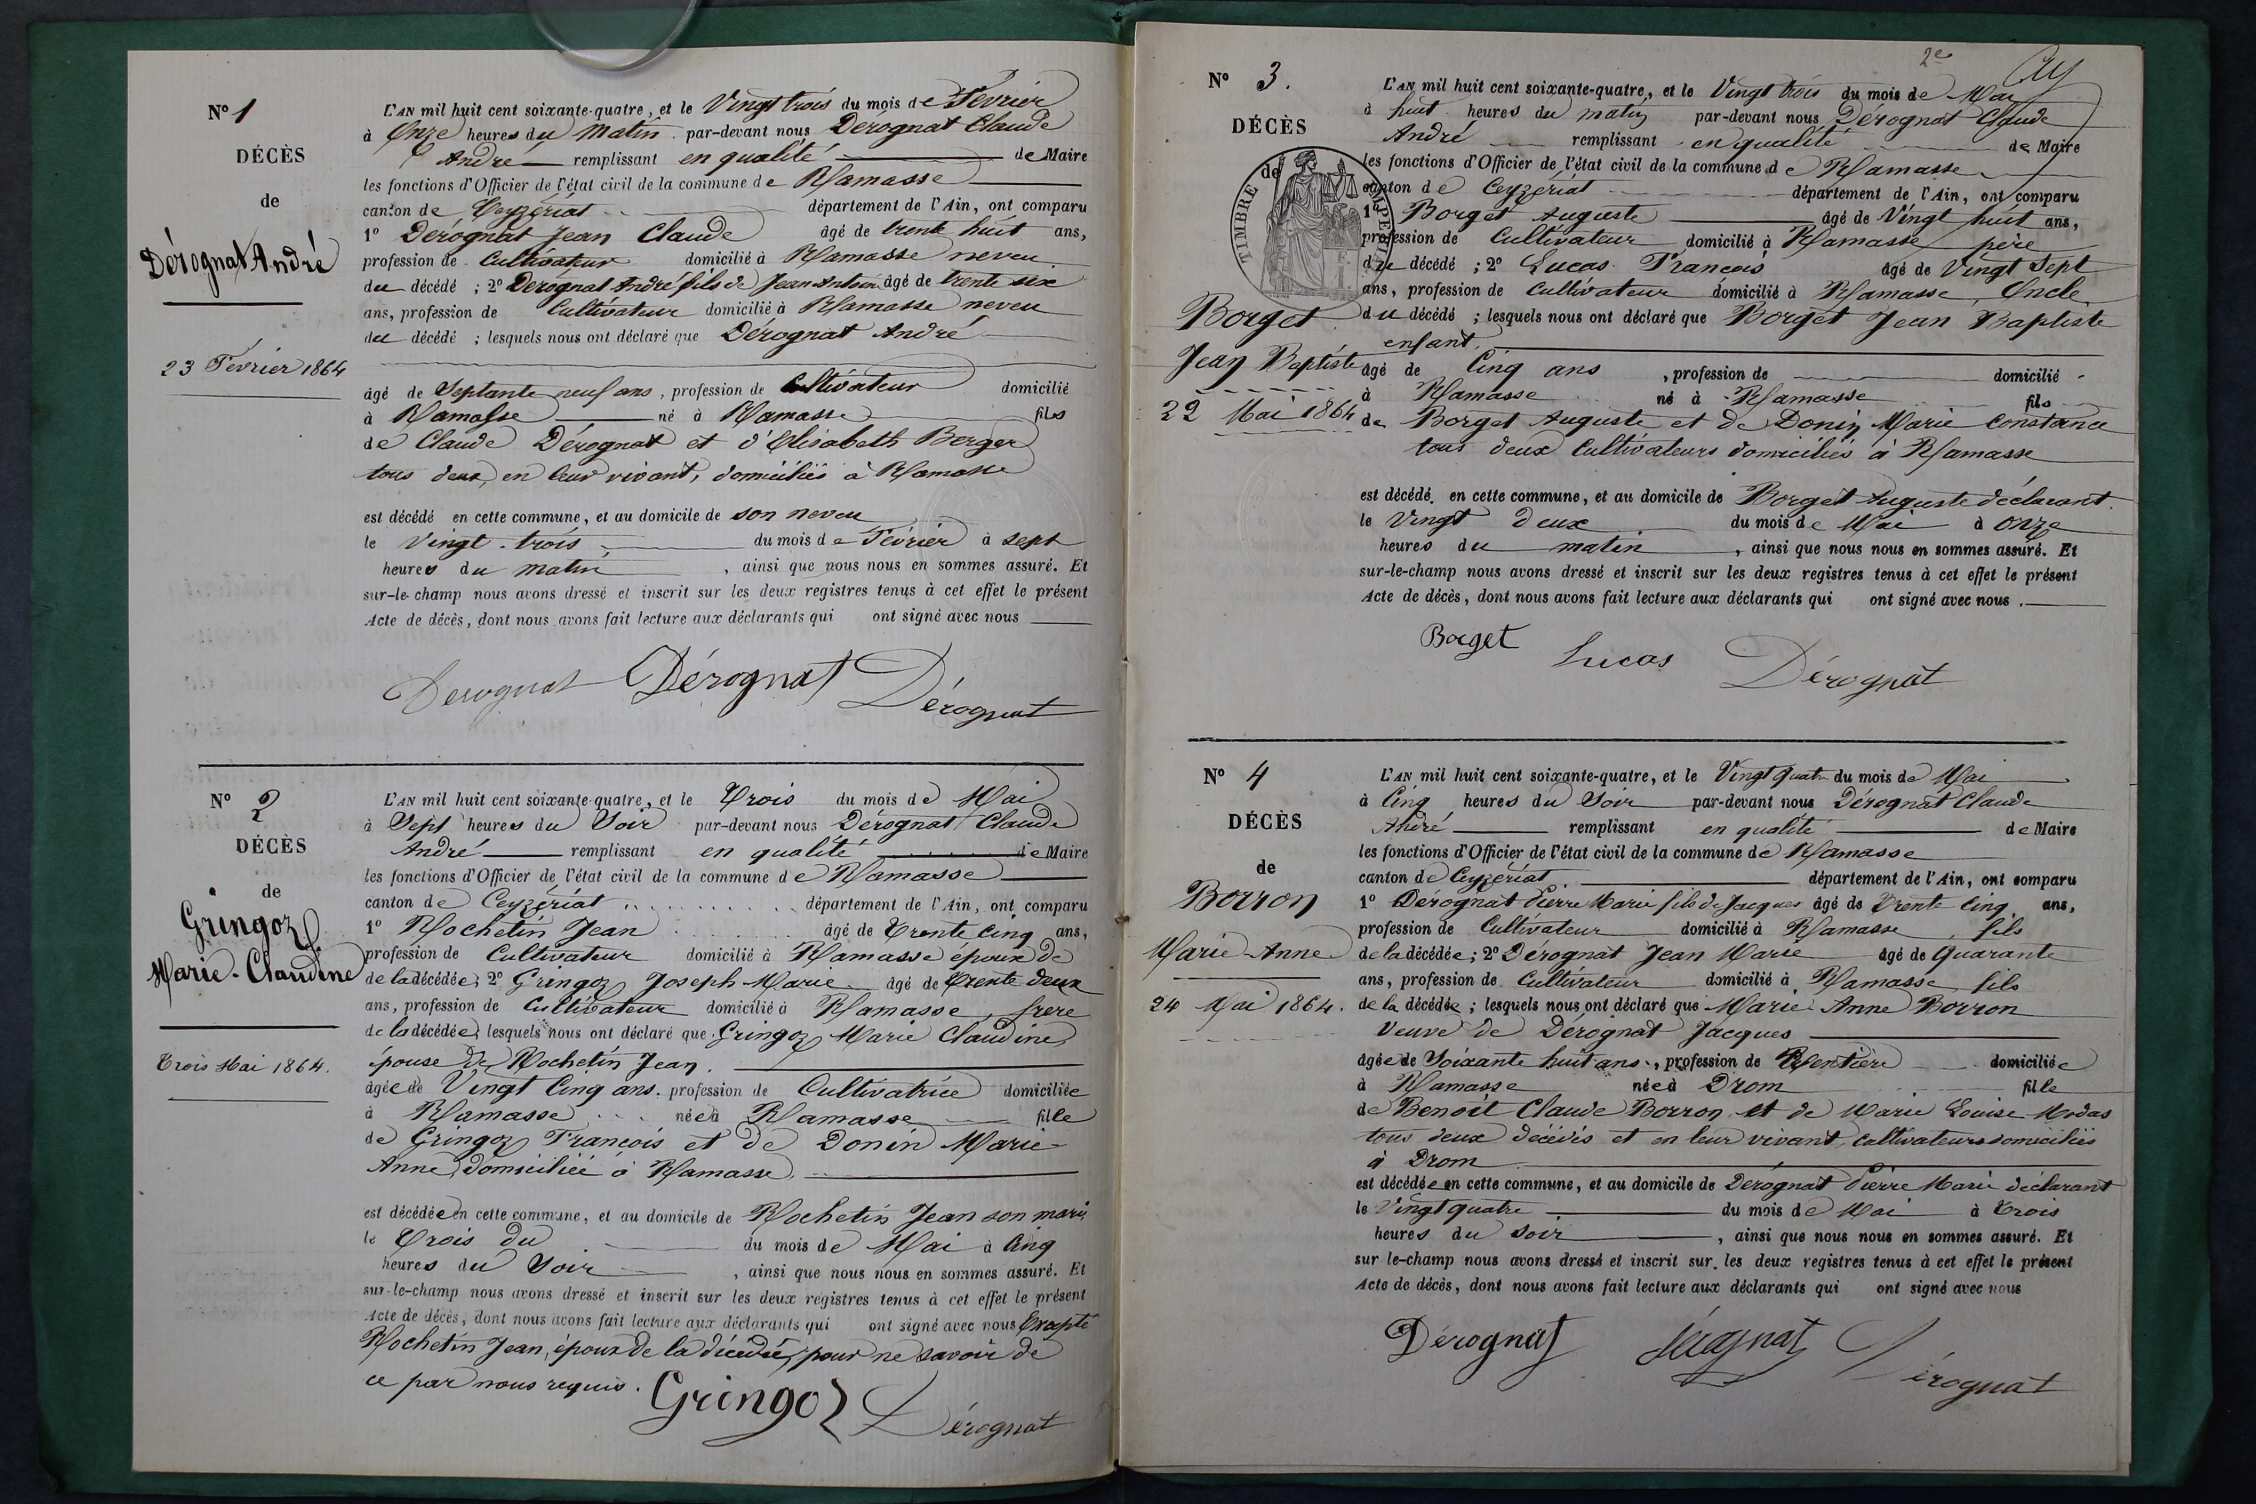 N° 1
DÉCÈS
de
Dérognat André
23 Février 1864
L'AN mil huit cent soixante-quatre, et le Vingt trois du mois de Février
à Onze heures du Matin par-devant nous Dérognat Claude
André remplissant en qualité de Maire
les fonctions d'Officier de l'état civil de la commune de Ramasse
canton de Ceyzériat département de l'Ain, ont comparu
1° Dérognat Jean Claude âgé de trente huit ans,
profession de Cultivateur domicilié à Ramasse neveu
du décédé ; 2° Dérognat André fils de Jean Antoine âgé de trente six
ans, profession de Cultivateur domicilié à Ramasse neveu
du décédé ; lesquels nous ont déclaré que Dérognat André
âgé de Septante neuf ans, profession de Cultivateur domicilié
à Ramasse né à Ramasse fils
de Claude Dérognat et d'Elisabeth Berger
tous deux, en leur vivant, domiciliés à Ramasse
est décédé en cette commune, et au domicile de son neveu
le Vingt-trois du mois de Février à sept
heures du matin, ainsi que nous nous en sommes assuré. Et
sur-le-champ nous avons dressé et inscrit sur les deux registres tenus à cet effet le présent
Acte de décès, dont nous avons fait lecture aux déclarants qui ont signé avec nous
Derognat Dérognat Dérognat
N° 2
DÉCÈS
de
Gringoz
Marie-Claudine
Trois Mai 1864.
L'AN mil huit cent soixante-quatre, et le Trois du mois de Mai
à Sept heures du Soir par-devant nous Dérognat Claude
André remplissant en qualité de Maire
les fonctions d'Officier de l'état civil de la commune de Ramasse
canton de Ceyzériat département de l'Ain, ont comparu
1° Rochetin Jean âgé de Trente Cinq ans,
profession de Cultivateur domicilié à Ramasse époux de
de la décédée; 2° Gringoz Joseph Marie âgé de Trente deux
ans, profession de Cultivateur domicilié à Ramasse, frere
de la décédée; lesquels nous ont déclaré que Gringoz Marie Claudine
épouse de Rochetin Jean.
âgée de Vingt Cinq ans. profession de Cultivatrice domiciliée
à Ramasse née à Ramasse fille
de Gringoz François et de Donin Marie-
Anne, domiciliée à Ramasse
est décédée en cette commune, et au domicile de Rochetin Jean son mari
le Trois du du mois de Mai à Cinq
heures du Soir, ainsi que nous nous en sommes assuré. Et
sur-le-champ nous avons dressé et inscrit sur les deux registres tenus à cet effet le présent
Acte de décès, dont nous avons fait lecture aux déclarants qui ont signé avec nous Excepté
Rochetin Jean, époux de la décédée, pour ne savoir de
ce par nous requis.
Gringoz Dérognat
2e
N° 3.
DÉCÈS
de
TIMBRE IMPERIAL
Borget
Jean Baptiste
22 Mai 1864
L'AN mil huit cent soixante-quatre, et le Vingt trois du mois de Mai
à huit heures du matin par-devant nous Dérognat Claude
André remplissant en qualité de Maire
les fonctions d'Officier de l'état civil de la commune de Ramasse
canton de Ceyzériat département de l'Ain, ont comparu
1° Borget Auguste âgé de Vingt huit ans,
profession de Cultivateur domicilié à Ramasse père
du décédé ; 2° Lucas Francois âgé de Vingt Sept
ans, profession de Cultivateur domicilié à Ramasse, Oncle
du décédé ; lesquels nous ont déclaré que Borget Jean Baptiste
enfant.
âgé de Cinq ans, profession de domicilié
à Ramasse né à Ramasse fils
de Borget Auguste et de Donin Marie Constance
tous deux Cultivateurs domiciliés à Ramasse
est décédé. en cette commune, et au domicile de Borget Auguste déclarant.
le Vingt deux du mois de Mai à onze
heures du matin, ainsi que nous nous en sommes assuré. Et
sur-le-champ nous avons dressé et inscrit sur les deux registres tenus à cet effet le présent
Acte de décès, dont nous avons fait lecture aux déclarants qui ont signé avec nous.
Borget Lucas Dérognat
N° 4
DÉCÈS
de
Borron
Marie Anne
24 Mai 1864.
L'AN mil huit cent soixante-quatre, et le Vingt quatre du mois de Mai
à Cinq heures du Soir par-devant nous Dérognat Claude
André remplissant en qualité de Maire
les fonctions d'Officier de l'état civil de la commune de Ramasse
canton de Ceyzériat. département de l'Ain, ont comparu
1° Dérognat Pierre Marie fils de Jacques âgé de Trente Cinq ans,
profession de Cultivateur domicilié à Ramasse, fils
de la décédée; 2° Dérognat Jean Marie âgé de Quarante
ans, profession de Cultivateur domicilié à Ramasse, fils
de la décédée ; lesquels nous ont déclaré que Marie Anne Borron
veuve de Dérognat Jacques
âgée de Soixante huit ans, profession de Rentière domiciliée
à Ramasse née à Drom fille
de Benoit Claude Borron et de Marie Louise Modas
tous deux décédés et en leur vivant, cultivateurs domiciliés
à Drom
est décédée en cette commune, et au domicile de Dérognat Pierre Marie déclarant
le Vingt quatre du mois de Mai à Trois
heures du soir, ainsi que nous nous en sommes assuré. Et
sur le-champ nous avons dressé et inscrit sur les deux registres tenus à cet effet le présent
Acte de décès, dont nous avons fait lecture aux déclarants qui ont signé avec nous
Dérognat Dérognat Dérognat